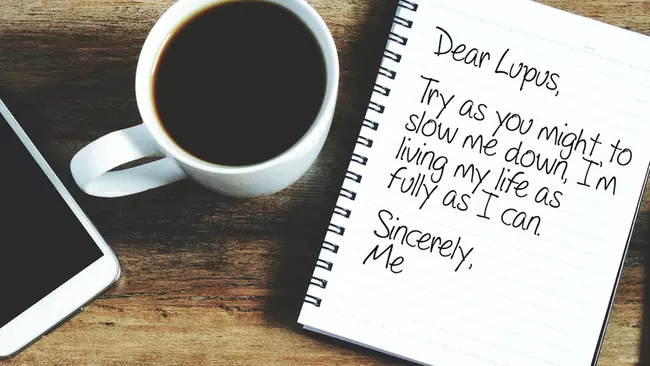 Dear Lupus,
Try as you might to
slow me down, I'm
living my life as
fully as I can.
Sincerely,
Me